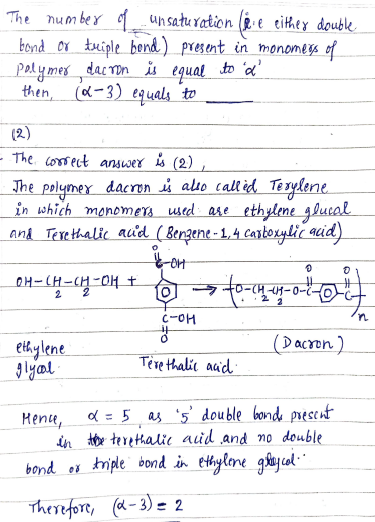 The number of unsaturation (i.e either double
bond or triple bond) present in monomers of
polymer dacron is equal to 'α'
then, (α-3) equals to ______
(2)
- The correct answer is (2),
The polymer dacron is also called Terylene
in which monomers used are ethylene glucol
and Terethalic acid (Benzene-1,4 carboxylic acid)
O
C-OH
OH-CH2-CH2-OH + → (O-CH2-CH2-O-C(=O)-C(=O))n
C-OH
O
ethylene
glycol
Terethalic acid
(Dacron)
Hence, α = 5 as '5' double bonds present
in the terethalic acid and no double
bond or triple bond in ethylene glycol.
Therefore, (α-3) = 2